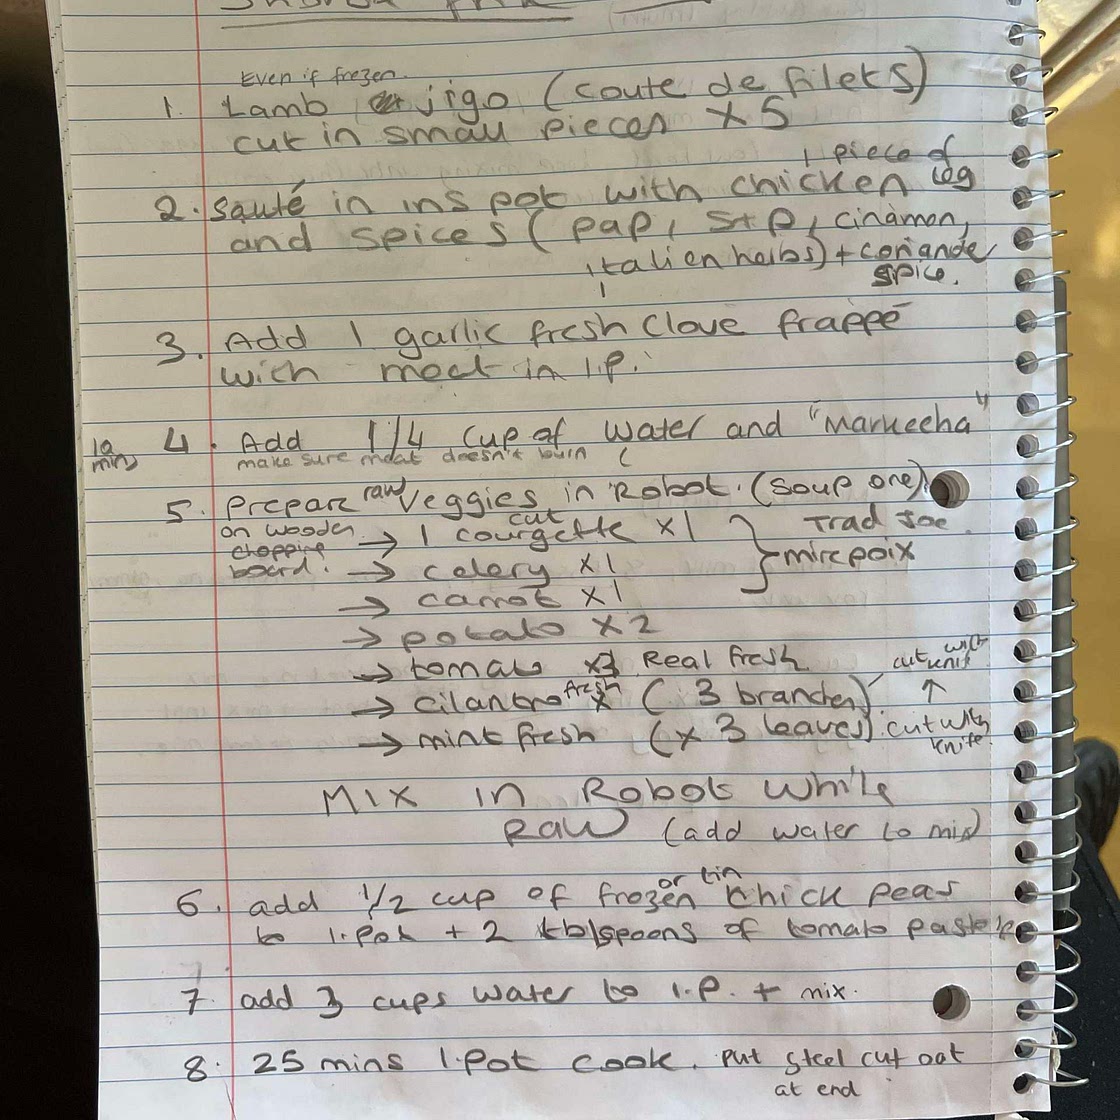 Even if frozen.
1. Lamb jigo (coute de filets)
cut in small pieces x5
1 piece of
2. Sauté in ins pot with chicken leg
and spices ( pap, S+P, cinamon,
italien herbs) + coriander
spice.
3. Add 1 garlic fresh clove frappé
with meat in I.P.
10 mins 4. Add 1/4 cup of water and "Markeeha"
make sure meat doesn't burn
5. Prepare raw veggies in Robot. (soup one)
on wooden chopping board!
→ 1 cut courgette x1 } Trad Joe
→ celery x1 } mirepoix
→ carrot x1
→ potato x2
→ tomato x3 Real fresh
→ cilantro fresh x ( 3 branches) ↑ cut with knife
→ mint fresh (x 3 leaves). cut with knife
Mix in Robot while
Raw (add water to mix)
6. add 1/2 cup of frozen or tin chick peas
to I.Pot + 2 tblspoons of tomato paste
7. add 3 cups water to I.P. + mix.
8. 25 mins I.Pot cook. put steel cut oat
at end